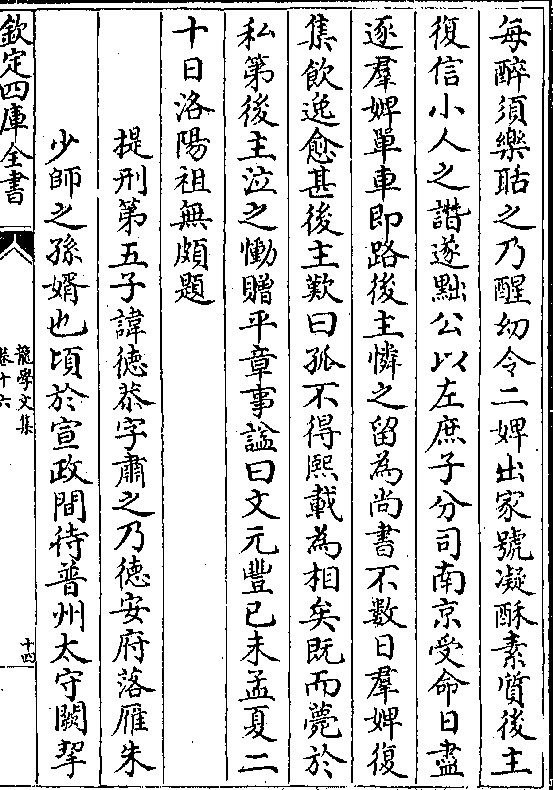 每醉須樂聒之乃醒幼令二婢出家號凝酥素質後主
復信小人之譛遂黜公以左庶子分司南京受命日盡
逐羣婢單車即路後主憐之留為尚書不數日羣婢復
集飲逸愈甚後主歎曰孤不得熙載為相矣既而薨於
私第後主泣之慟贈平章事謚曰文元豐已未孟夏二
十日洛陽祖無頗題
提刑第五子諱徳恭字肅之乃徳安府落雁朱
少師之孫婿也頃於宣政間待普州太守闕挈
欽定四庫全書
龍學文集
卷十六
十四